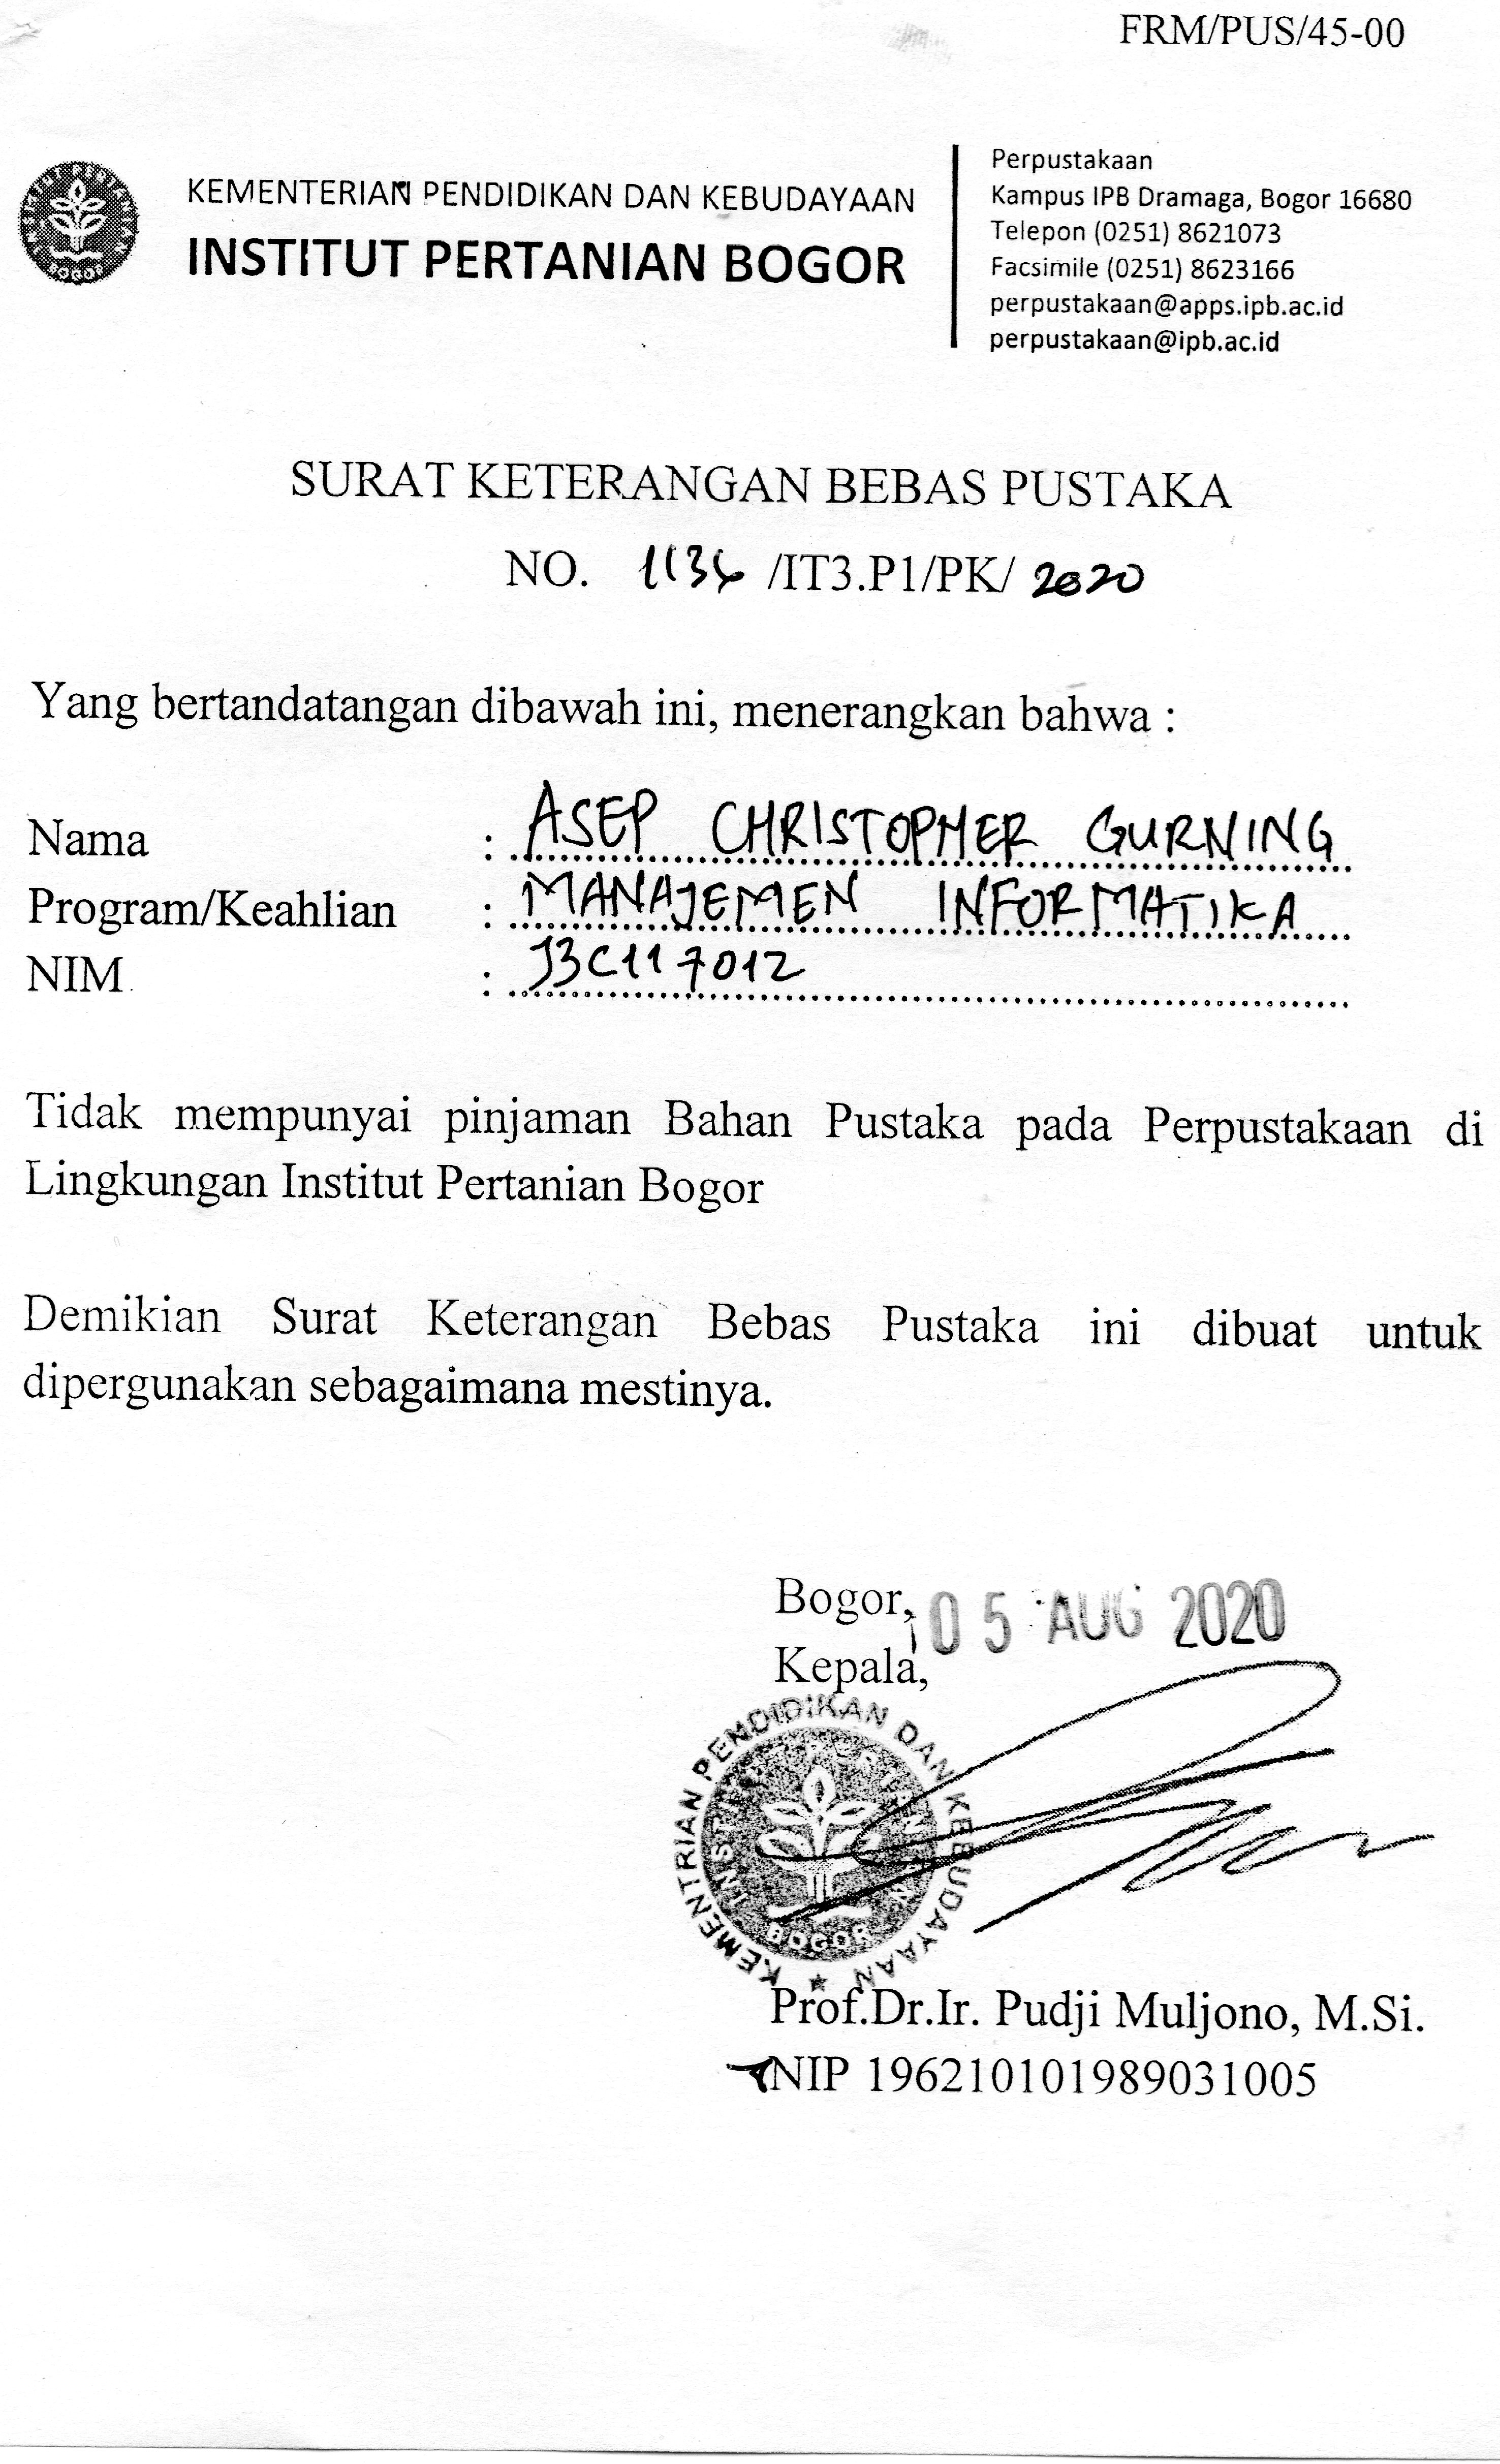 FRM/PUS/45-00
KEMENTERIAN PENDIDIKAN DAN KEBUDAYAAN
INSTITUT PERTANIAN BOGOR
Perpustakaan
Kampus IPB Dramaga, Bogor 16680
Telepon (0251) 8621073
Facsimile (0251) 8623166
perpustakaan@apps.ipb.ac.id
perpustakaan@ipb.ac.id
SURAT KETERANGAN BEBAS PUSTAKA
NO. 1136 /IT3.P1/PK/ 2020
Yang bertandatangan dibawah ini, menerangkan bahwa :
Nama : ASEP CHRISTOPHER GURNING
Program/Keahlian : MANAJEMEN INFORMATIKA
NIM : J3C117012
Tidak mempunyai pinjaman Bahan Pustaka pada Perpustakaan di
Lingkungan Institut Pertanian Bogor
Demikian Surat Keterangan Bebas Pustaka ini dibuat untuk
dipergunakan sebagaimana mestinya.
Bogor, 05 AUG 2020
Kepala,
KEMENTRIAN PENDIDIKAN DAN KEBUDAYAAN
INSTITUT PERTANIAN
BOGOR
Prof.Dr.Ir. Pudji Muljono, M.Si.
NIP 196210101989031005